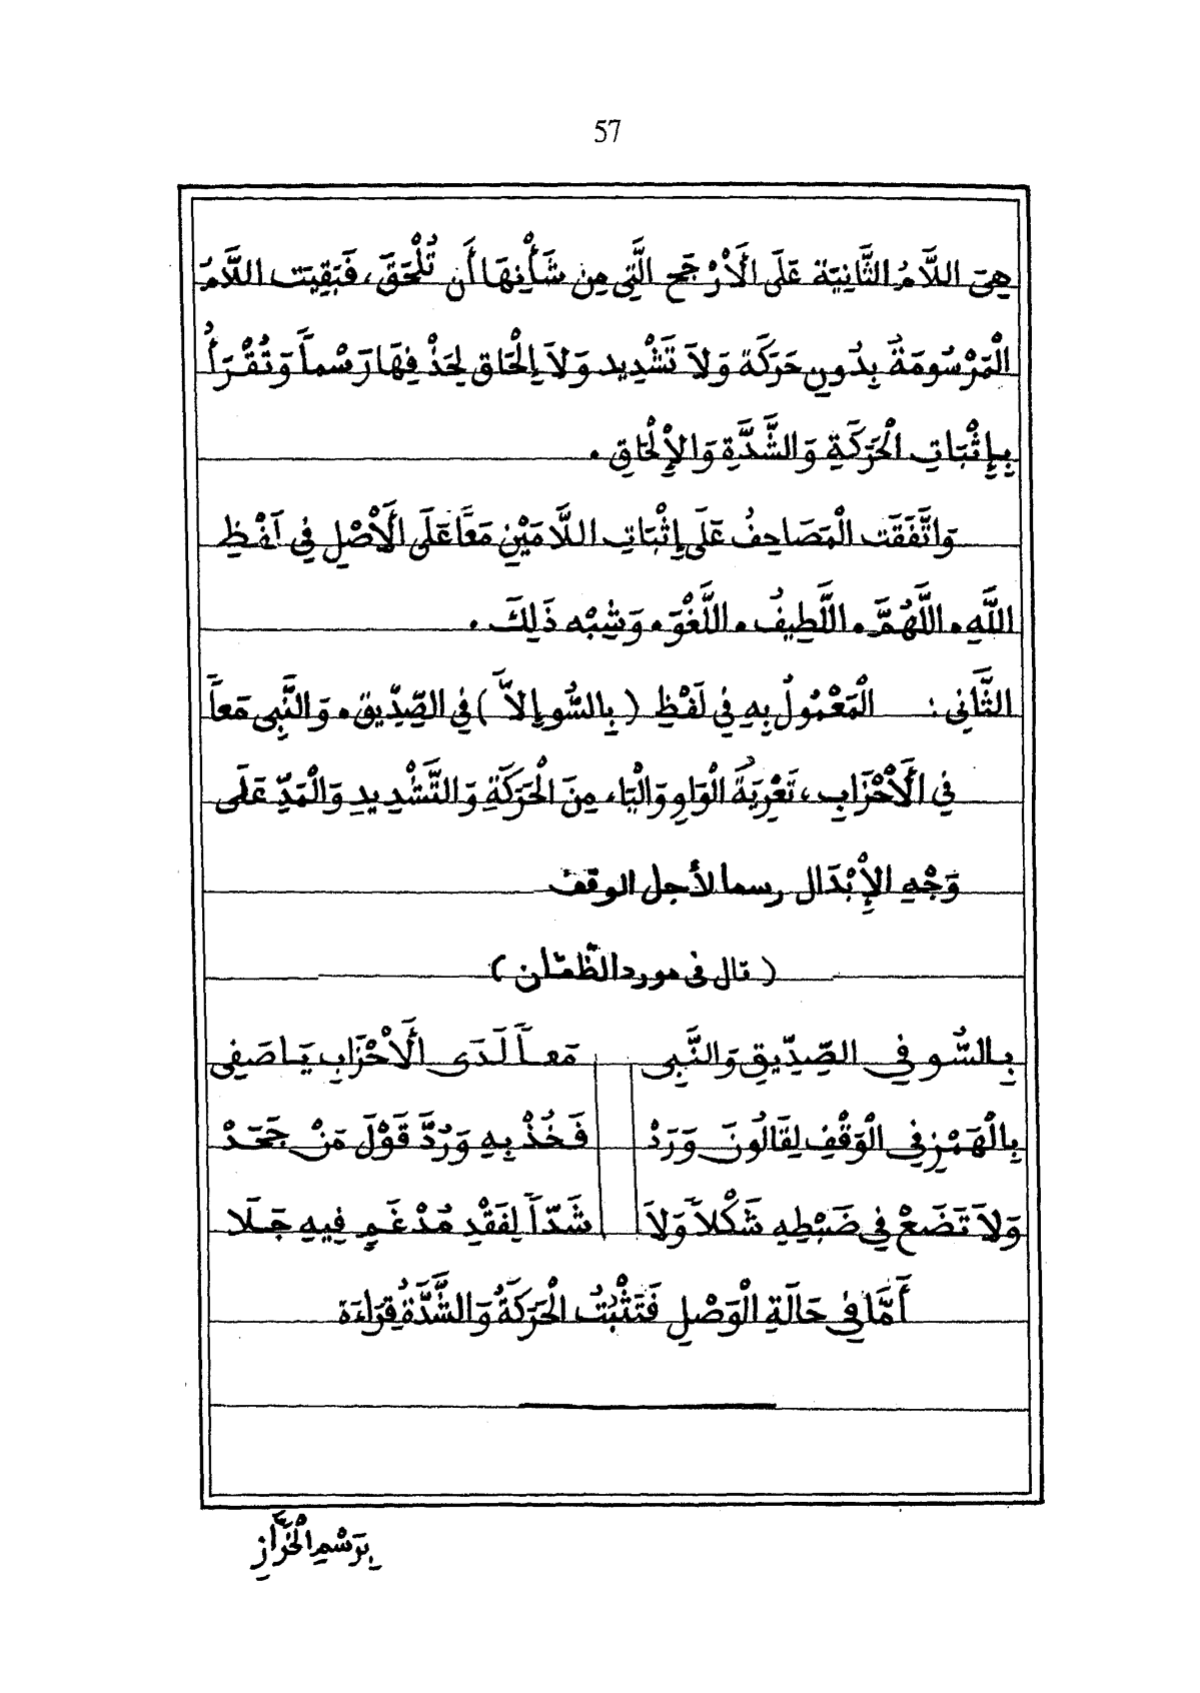 57
هِيَ اللَّامُ الثَّانِيَّة عَلَى الْأَرْجَحِ الَّتِي مِن شَأْنِهَا أَن تُلْحَقَ، فَبَقِيَت اللَّامُ
الْمَرْسُومَةُ بِدُونِ حَرَكَة وَلَا تَشْدِيد وَلَا إِلْحَاق لِحَذْفِهَا رَسْماً وَتُقْرَأُ
بِإِثْبَاتِ الْحَرَكَةِ وَالشَّدَّةِ وَالْإِلْحَاقِ .
وَاتَّفَقَت الْمَصَاحِفُ عَلَى إِثْبَاتِ اللَّامَيْنِ مَعاً عَلَى الْأَصْلِ فِي لَفْظِ
اللَّهِ . اللَّهُمَّ . اللَّطِيفُ . اللَّغْوَ . وَشِبْه ذَلِكَ .
الثَّانِي : الْمَعْمُولُ بِهِ فِي لَفْظِ (بِالسُّو إِلاَّ) فِي الصِّدِّيق . وَالنَّبِي مَعاً
فِي الْأَحْزَابِ، تَعْرِيَةُ الْوَاوِ وَالْيَاءِ مِنَ الْحَرَكَةِ وَالتَّشْدِيدِ وَالْمَدِّ عَلَى
وَجْهِ الْإِبْدَال رسما لأجل الوقف
(قال فى مورد الظّمئان)
بِالسُّو فِي الصِّدِّيقِ وَالنَّبِى مَعاً لَدَى الْأَحْزَابِ يَا صَفِى
بِالْهَمْزِ فِي الْوَقْفِ لِقَالُونَ وَرَدْ فَخُذْ بِهِ وَرُدَّ قَوْلَ مَنْ جَحَدْ
وَلَا تَضَعْ فِي ضَبْطِهِ شَكْلاً وَلَا شَدّاً لِفَقْدِ مُدْغَمٍ فِيهِ جَلَا
أَمَّا فِي حَالَةِ الْوَصْلِ فَتَثْبُتُ الْحَرَكَةُ وَالشَّدَّةُ قِرَاءَة
بِرَسْمِ الْخَرَّازِ